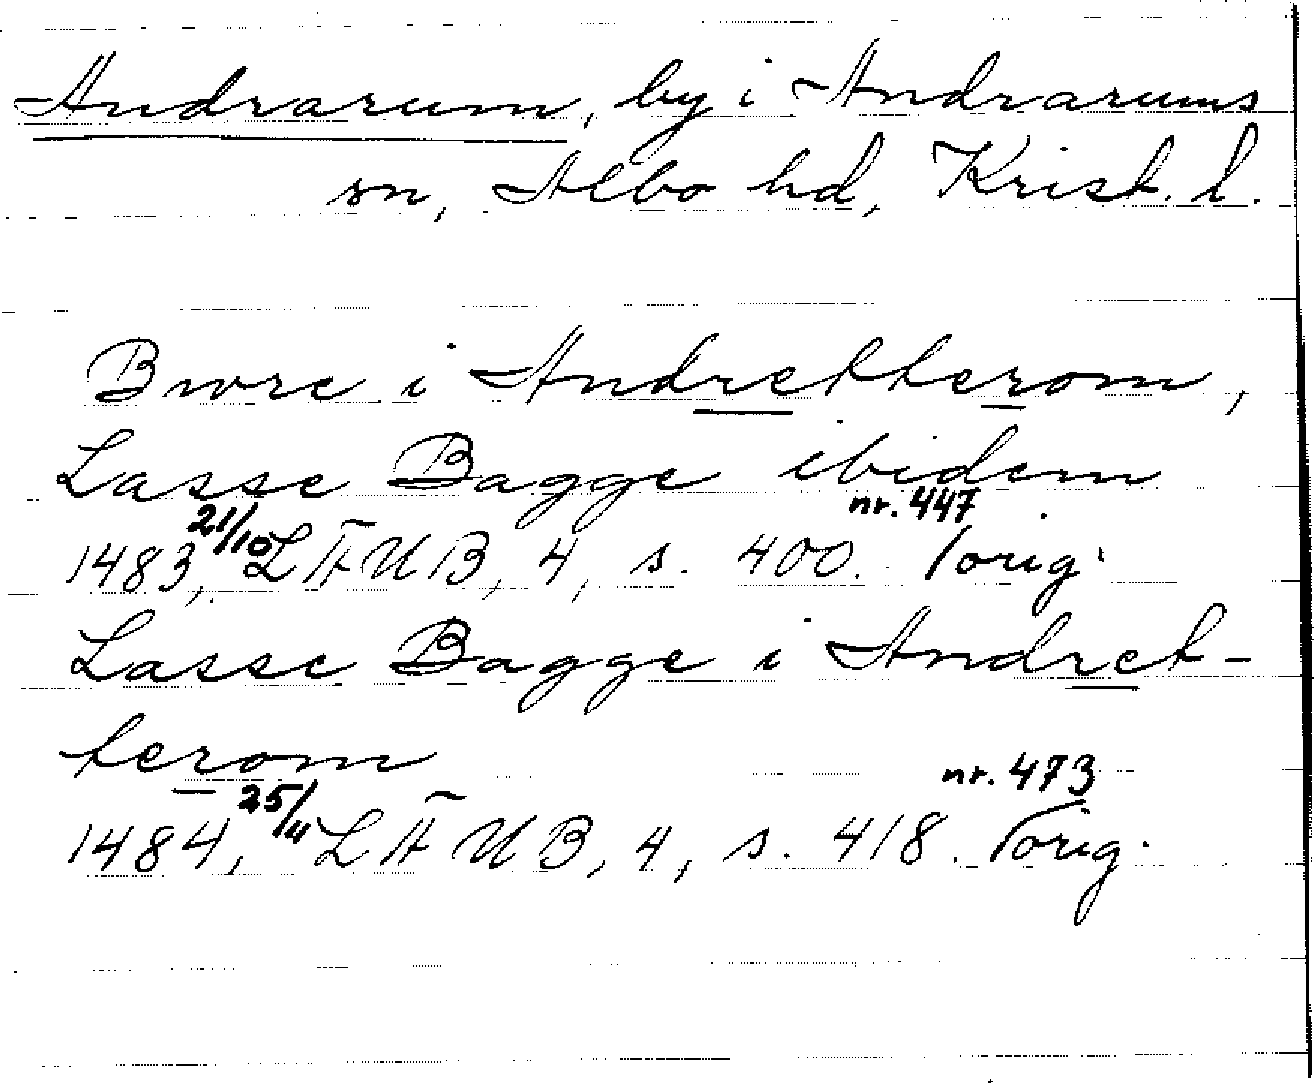 Andrarum, by i Andrarums
sn, Albo hd, Krist. l.
Bwre i Andretherom,
Lasse Bagge ibidem
nr. 447
1483, 21/10 LÄUB, 4, s. 400. √orig.
Lasse Bagge i Andret-
herom
nr. 473
1484, 25/4 LÄUB, 4, s. 418. √orig.